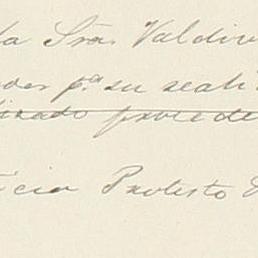 la Sra. Valdiv
des pª su reali
izado proced
icia Protesto